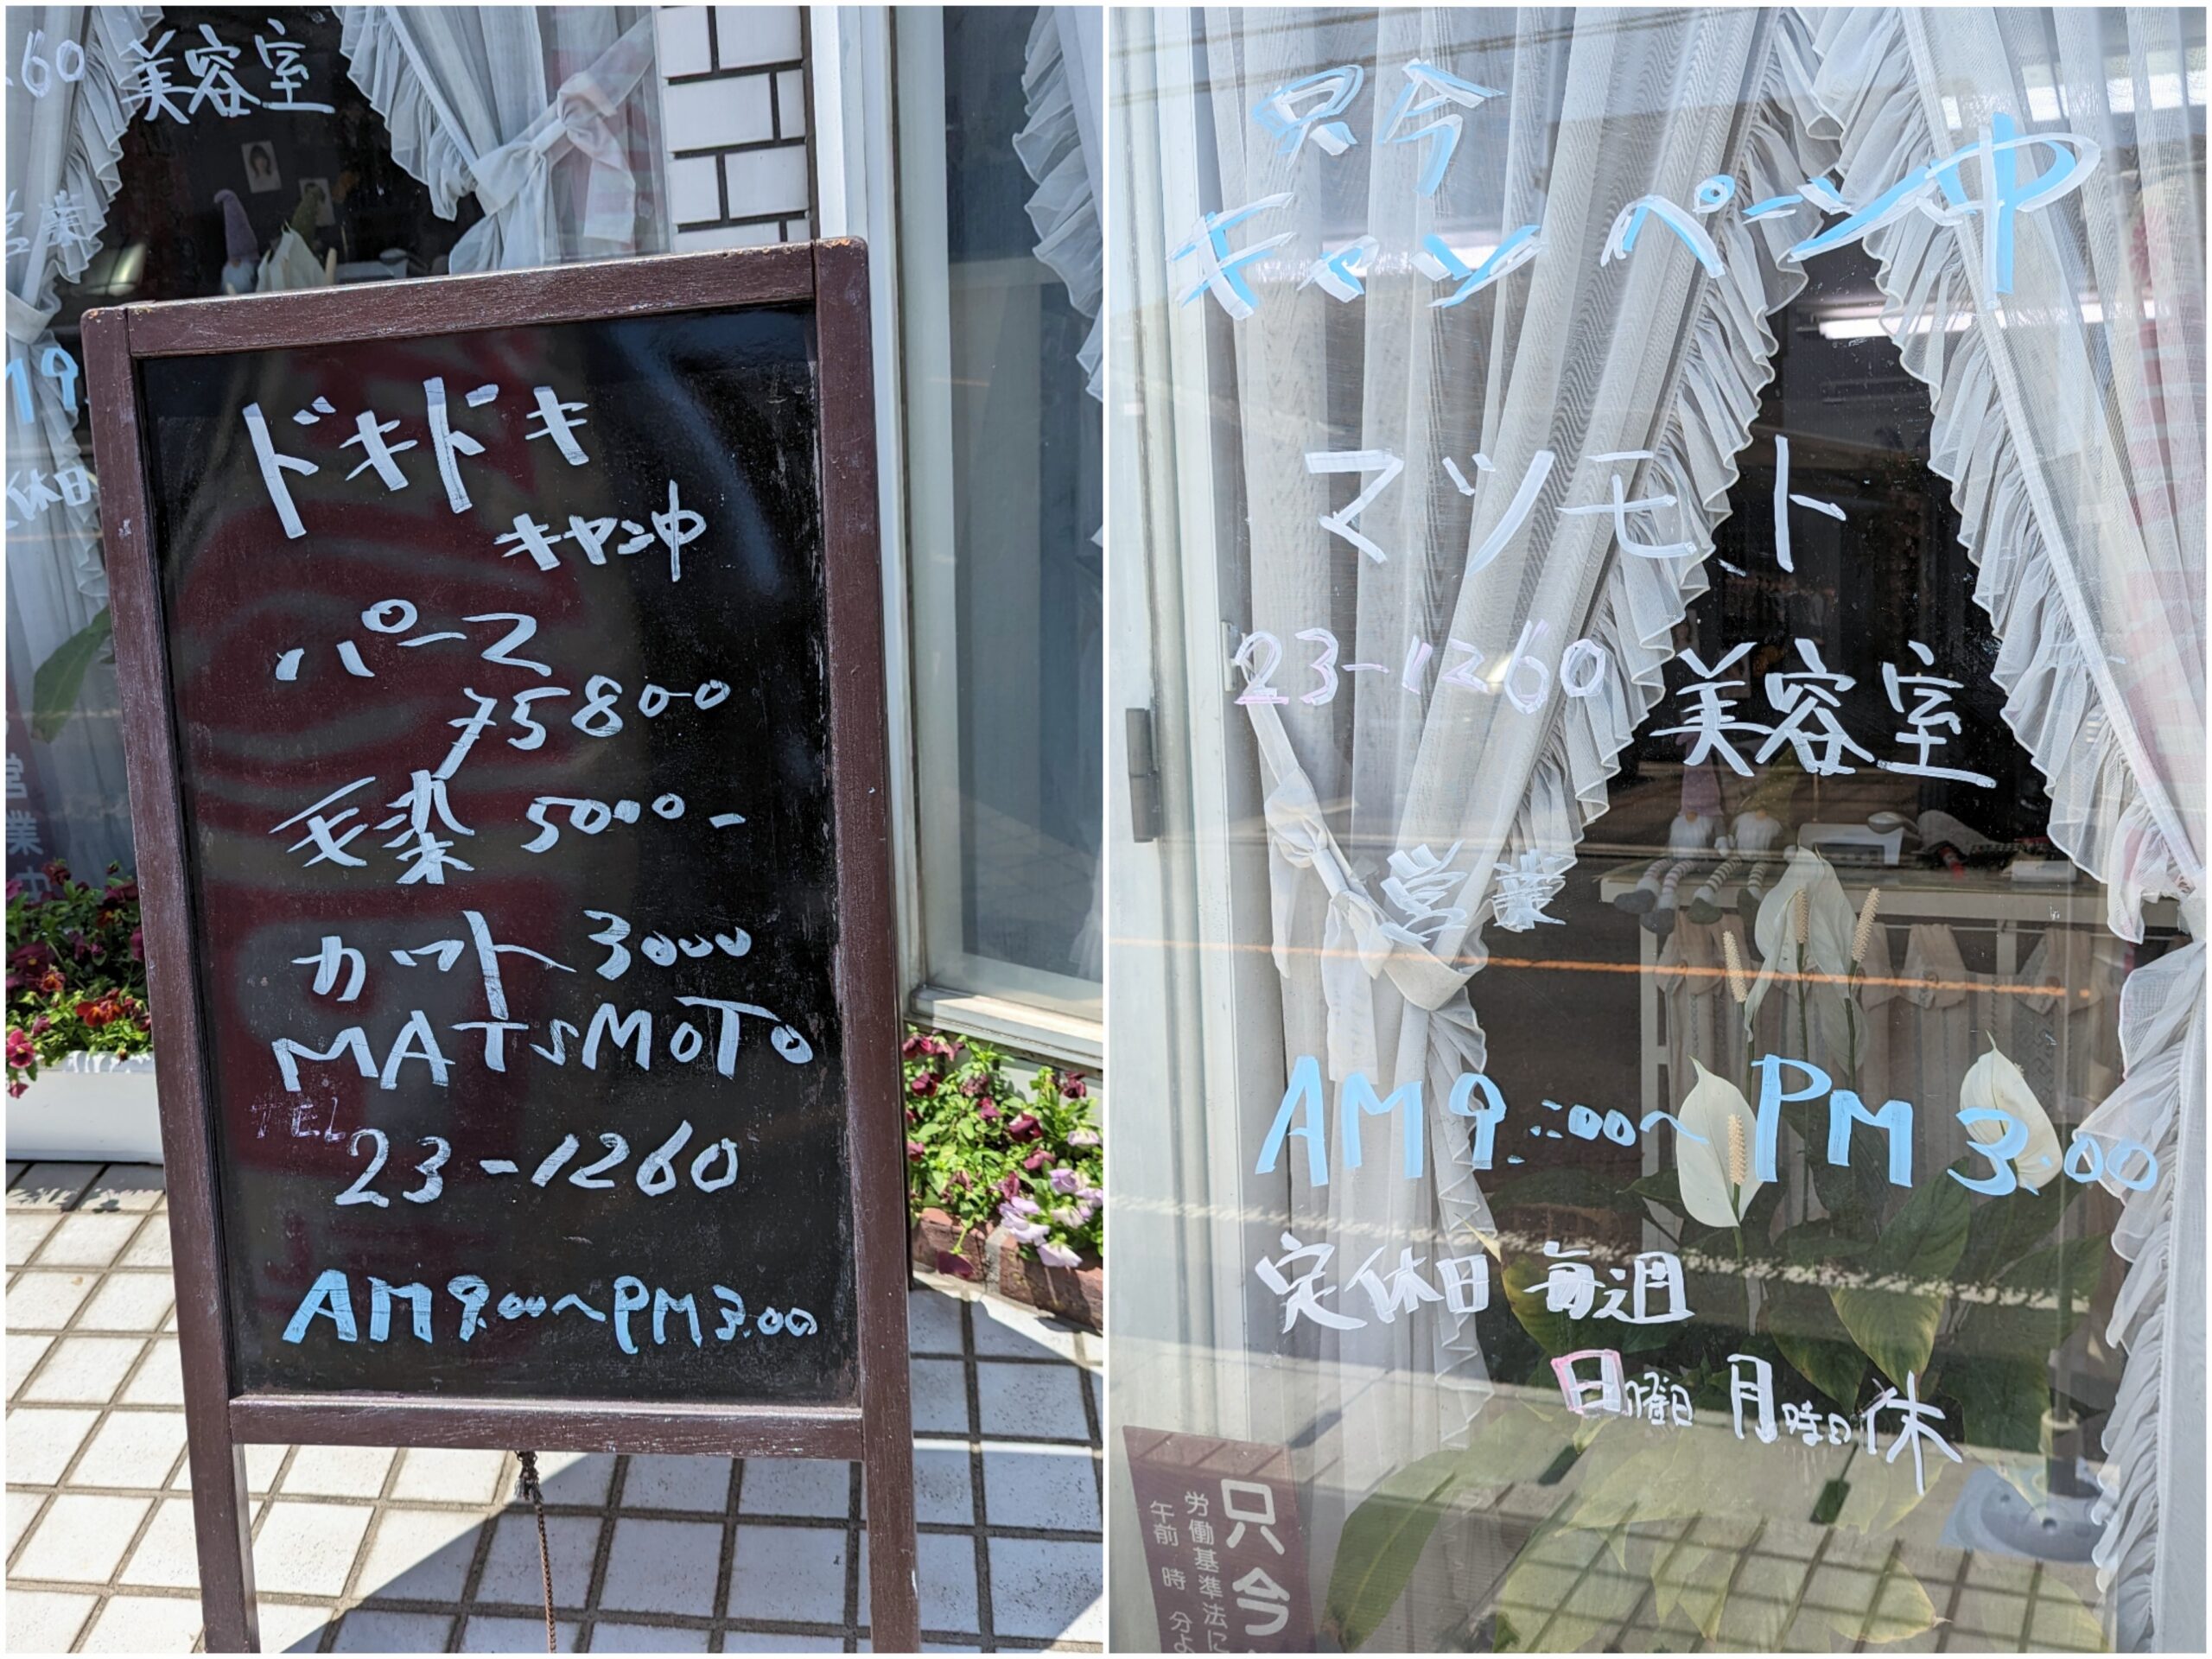 .60 美容室
営業
M9
休日
営業中
ドキドキ
キャン中
パーマ
¥5800
毛染 5000-
カット 3000
MATSMOTO
TEL
23-1260
AM9:00~PM3.00
只今
キャンペーン中
マツモト
23-1260 美容室
営業
AM9:00~PM3.00
定休日 毎週
日曜日 月時日休
只今
労働基準法に
午前 時 分よ